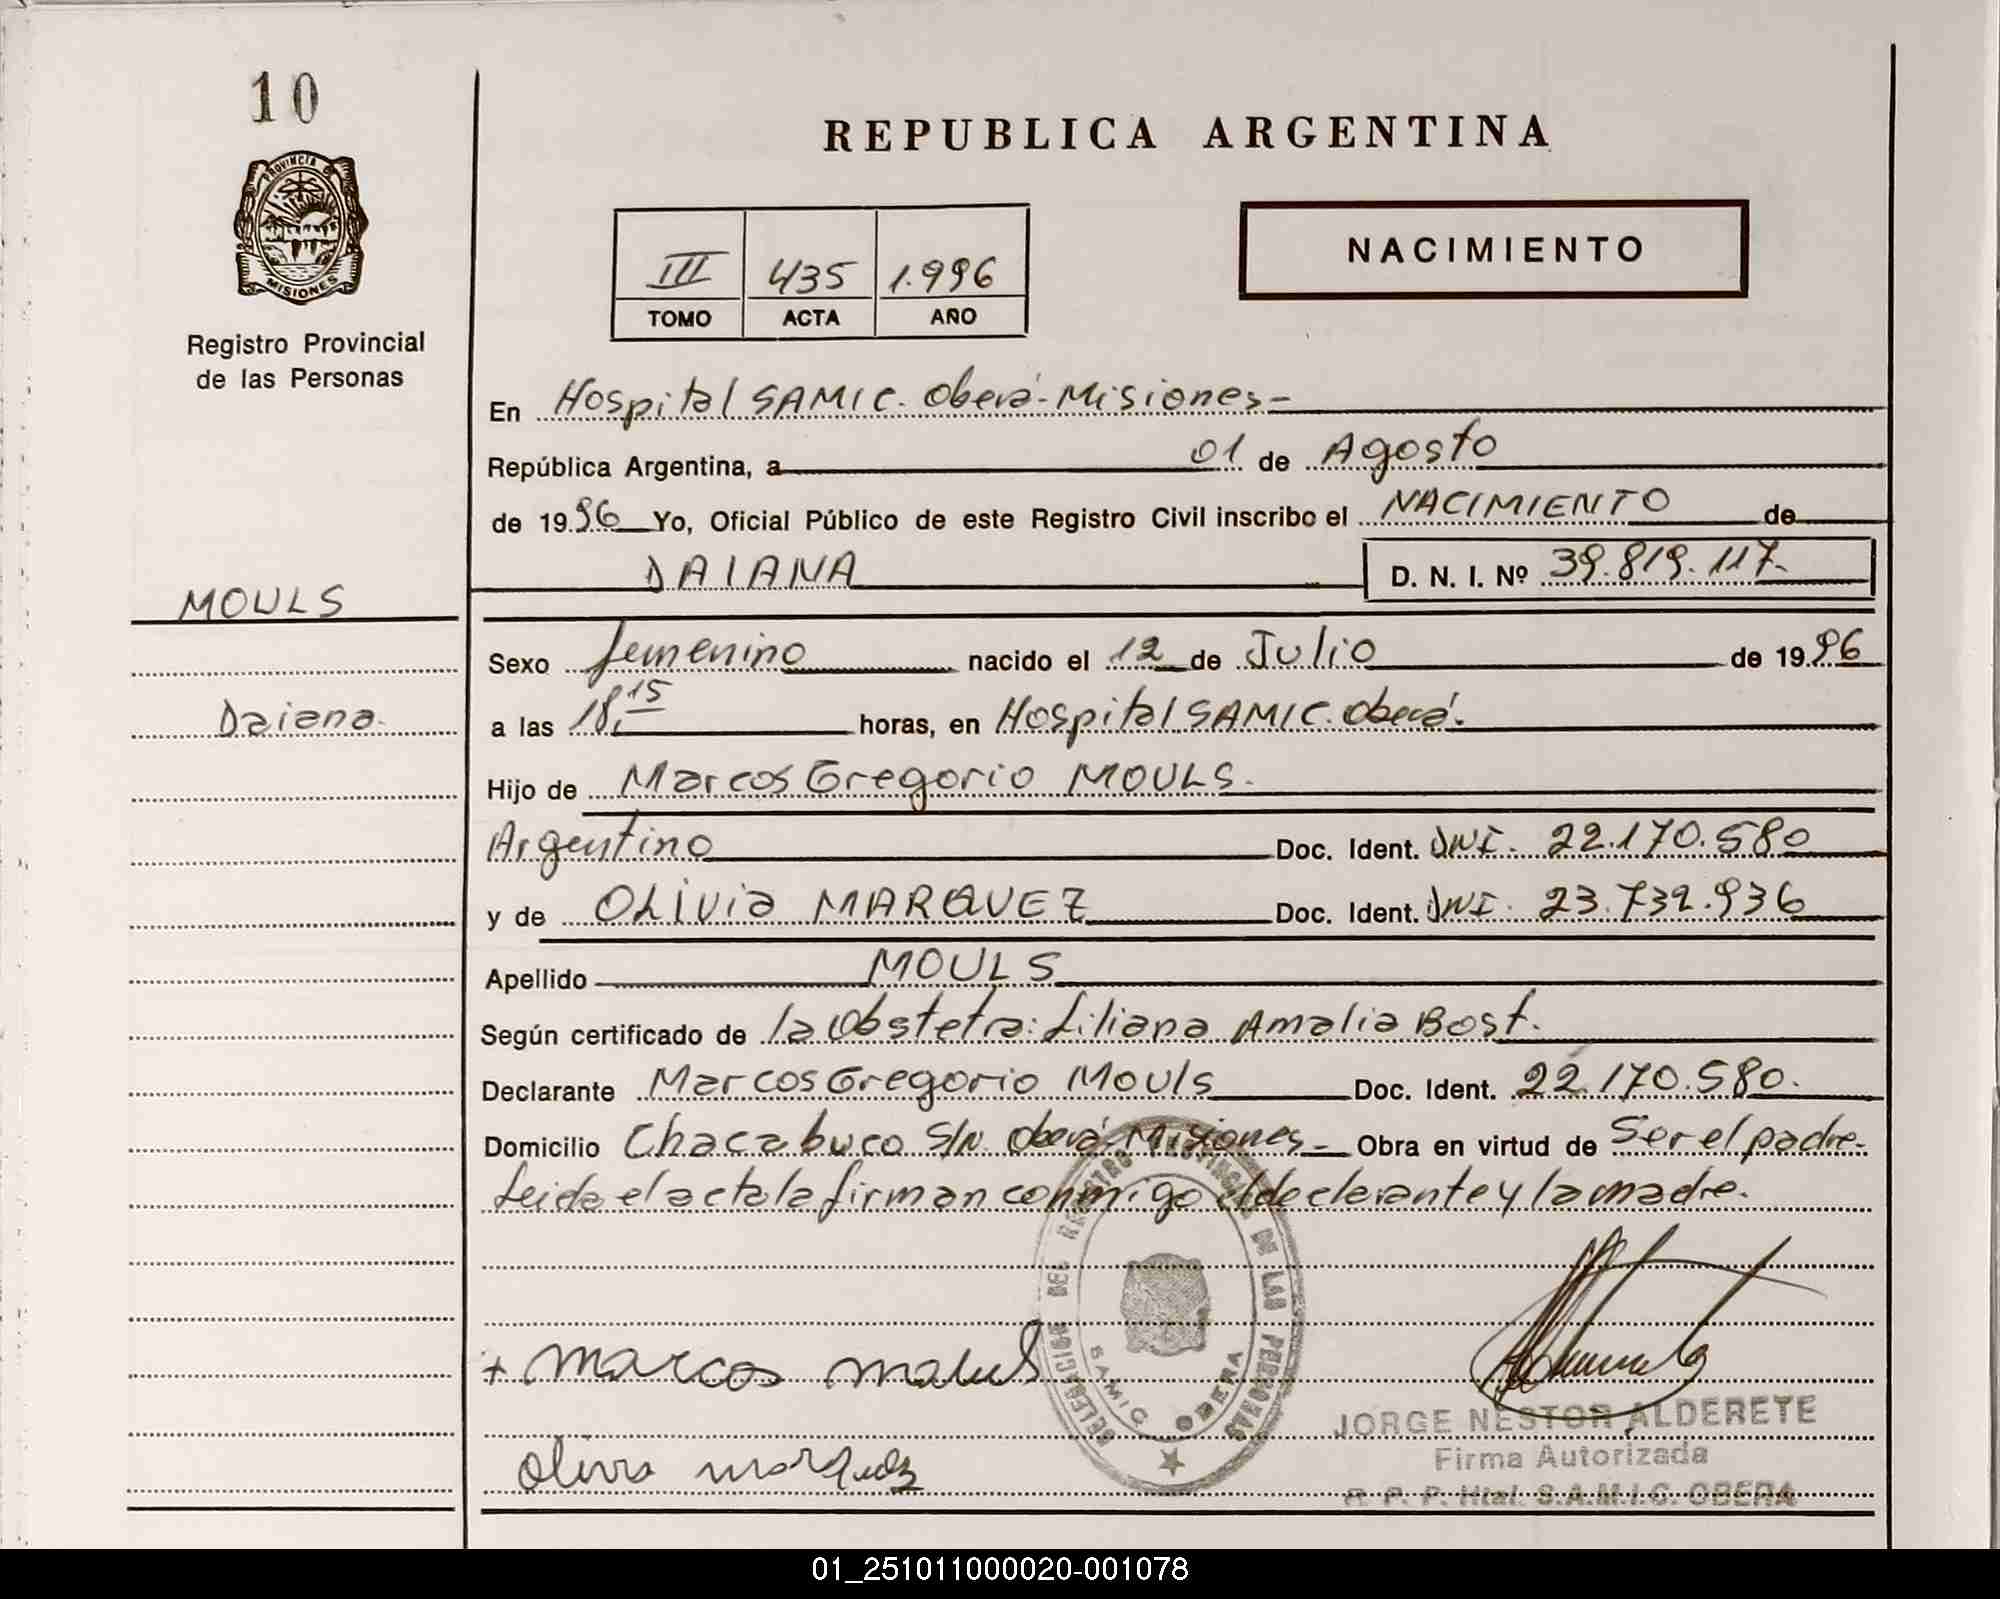 10
PROVINCIA DE
MISIONES
Registro Provincial
de las Personas
REPUBLICA ARGENTINA
NACIMIENTO
III 435 1.996
TOMO ACTA AÑO
En Hospital SAMIC. Oberá-Misiones-
República Argentina, a 01 de Agosto
de 1996 Yo, Oficial Público de este Registro Civil inscribo el NACIMIENTO de
DAIANA D. N. I. Nº 39.819.117.
MOULS
Daiana.
Sexo femenino nacido el 12 de Julio de 1996
a las 18,15 horas, en Hospital SAMIC. Oberá.
Hijo de Marcos Gregorio MOULS.
Argentino Doc. Ident. DNI. 22.170.580
y de OLIVIA MARQUEZ Doc. Ident. DNI. 23.732.936
Apellido MOULS
Según certificado de la Obstetra: Liliana Amalia Bost.
Declarante Marcos Gregorio Mouls Doc. Ident. 22.170.580.
Domicilio Chacabuco S/N. Oberá-Misiones- Obra en virtud de Ser el padre.
Leida el acta la firman conmigo el declarante y la madre.
DELEGACION DEL REGISTRO PROVINCIAL DE LAS PERSONAS
SAMIC OBERA
+ marcos
JORGE NESTOR ALDERETE
Firma Autorizada
R. P. P. Htal. S.A.M.I.C. OBERA
01_251011000020-001078